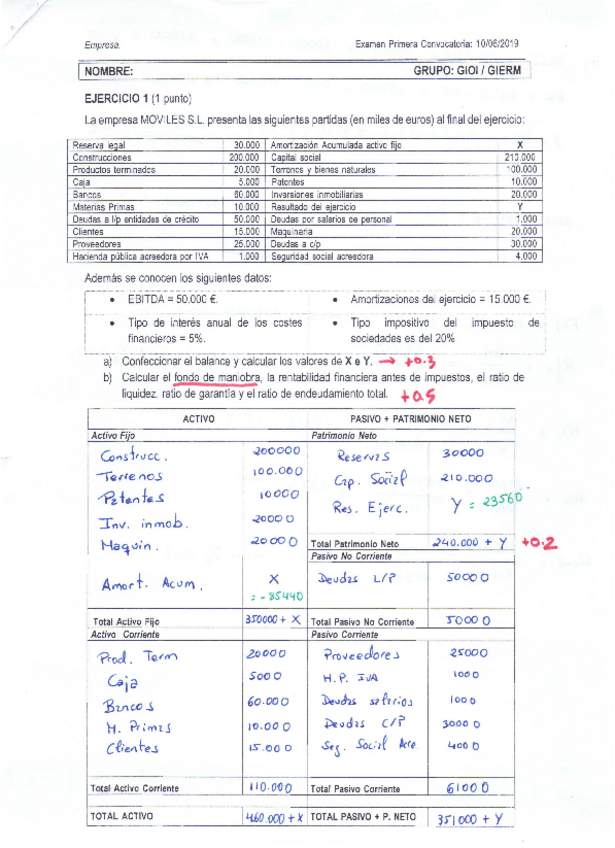 Empresa.
Examen Primera Convocatoria: 10/06/2019
NOMBRE:
GRUPO: GIOI / GIERM
EJERCICIO 1 (1 punto)
La empresa MOVILES S.L. presenta las siguientes partidas (en miles de euros) al final del ejercicio:
Reserva legal 30.000 Amortización Acumulada activo fijo X
Construcciones 200.000 Capital social 210.000
Productos terminados 20.000 Terrenos y bienes naturales 100.000
Caja 5.000 Patentes 10.000
Bancos 60.000 Inversiones inmobiliarias 20.000
Materias Primas 10.000 Resultado del ejercicio Y
Deudas a l/p entidades de crédito 50.000 Deudas por salarios de personal 1.000
Clientes 15.000 Maquinaria 20.000
Proveedores 25.000 Deudas a c/p 30.000
Hacienda pública acreedora por IVA 1.000 Seguridad social acreedora 4.000
Además se conocen los siguientes datos:
• EBITDA = 50.000 €.
• Amortizaciones del ejercicio = 15.000 €.
• Tipo de interés anual de los costes financieros = 5%.
• Tipo impositivo del impuesto de sociedades es del 20%
a) Confeccionar el balance y calcular los valores de X e Y. → +0.3
b) Calcular el fondo de maniobra, la rentabilidad financiera antes de impuestos, el ratio de
liquidez, ratio de garantía y el ratio de endeudamiento total. +0.5
ACTIVO PASIVO + PATRIMONIO NETO
Activo Fijo Patrimonio Neto
Construcc. 200000 Reservas 30000
Terrenos 100.000 Cap. Social 210.000
Patentes 10000 Res. Ejerc. Y = 23560
Inv. inmob. 20000
Maquin. 20000 Total Patrimonio Neto 240.000 + Y +0.2
Pasivo No Corriente
Amort. Acum. X Deudas L/P 50000
= -85440
Total Activo Fijo 350000 + X Total Pasivo No Corriente 50000
Activo Corriente Pasivo Corriente
Prod. Term 20000 Proveedores 25000
Caja 5000 H.P. IVA 1000
Bancos 60.000 Deudas salarios 1000
M. Primas 10.000 Deudas C/P 30000
Clientes 15.000 Seg. Social Acre. 4000
Total Activo Corriente 110.000 Total Pasivo Corriente 61000
TOTAL ACTIVO 460.000 + X TOTAL PASIVO + P. NETO 351000 + Y